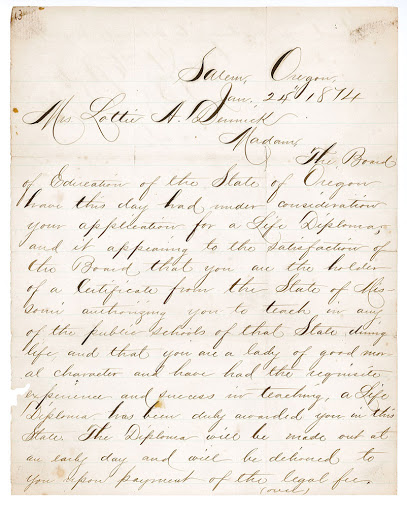 Salem, Oregon,
Jan. 24 1874
Mrs Lottie A.
Madam,
The Board
of Education of the State of Oregon
have this day had under consideration
your application for a Life Diploma,
and it appearing to the satisfaction of
the Board that you are the holder
of a Certificate from the State of Mis-
souri authorizing you to teach in any
of the public schools of that State during
life and that you are a lady of good mor-
al character and have had the requisite
experience and success in teaching, a Life
Diploma has been duly awarded you in this
State. The Diploma will be made out at
an early day and will be delivered to
you upon payment of the legal fee.
(over)